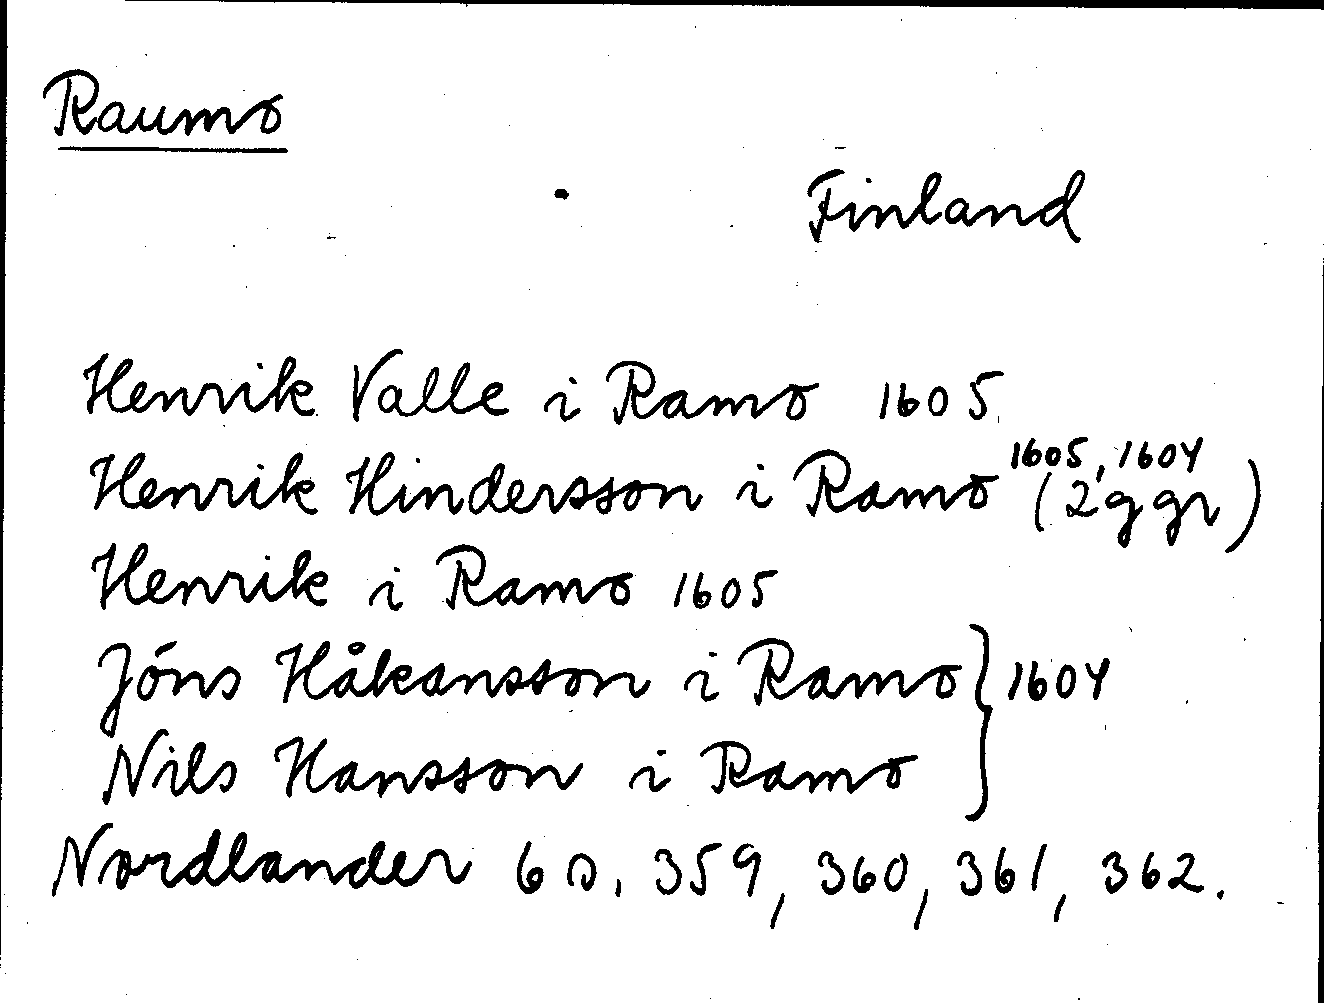 Raumo
Finland
Henrik Valle i Ramo 1605
Henrik Hindersson i Ramo 1605, 1604 (2 ggr)
Henrik i Ramo 1605
Jöns Håkansson i Ramo } 1604
Nils Hansson i Ramo
Nordlander 6 s. 359, 360, 361, 362.